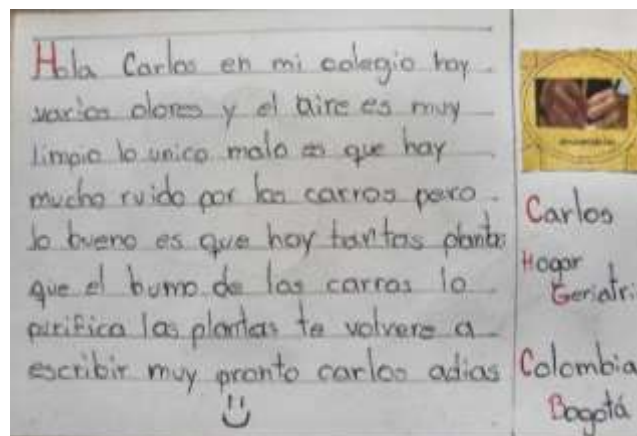 Hola Carlos en mi colegio hay
varios olores y el aire es muy
limpio lo unico malo es que hay
mucho ruido por los carros pero
lo bueno es que hay tantas plantas
que el humo de los carros lo
purifica las plantas te volvere a
escribir muy pronto carlos adias
Carlos
Hogar
Geriatri
Colombia
Bogotá